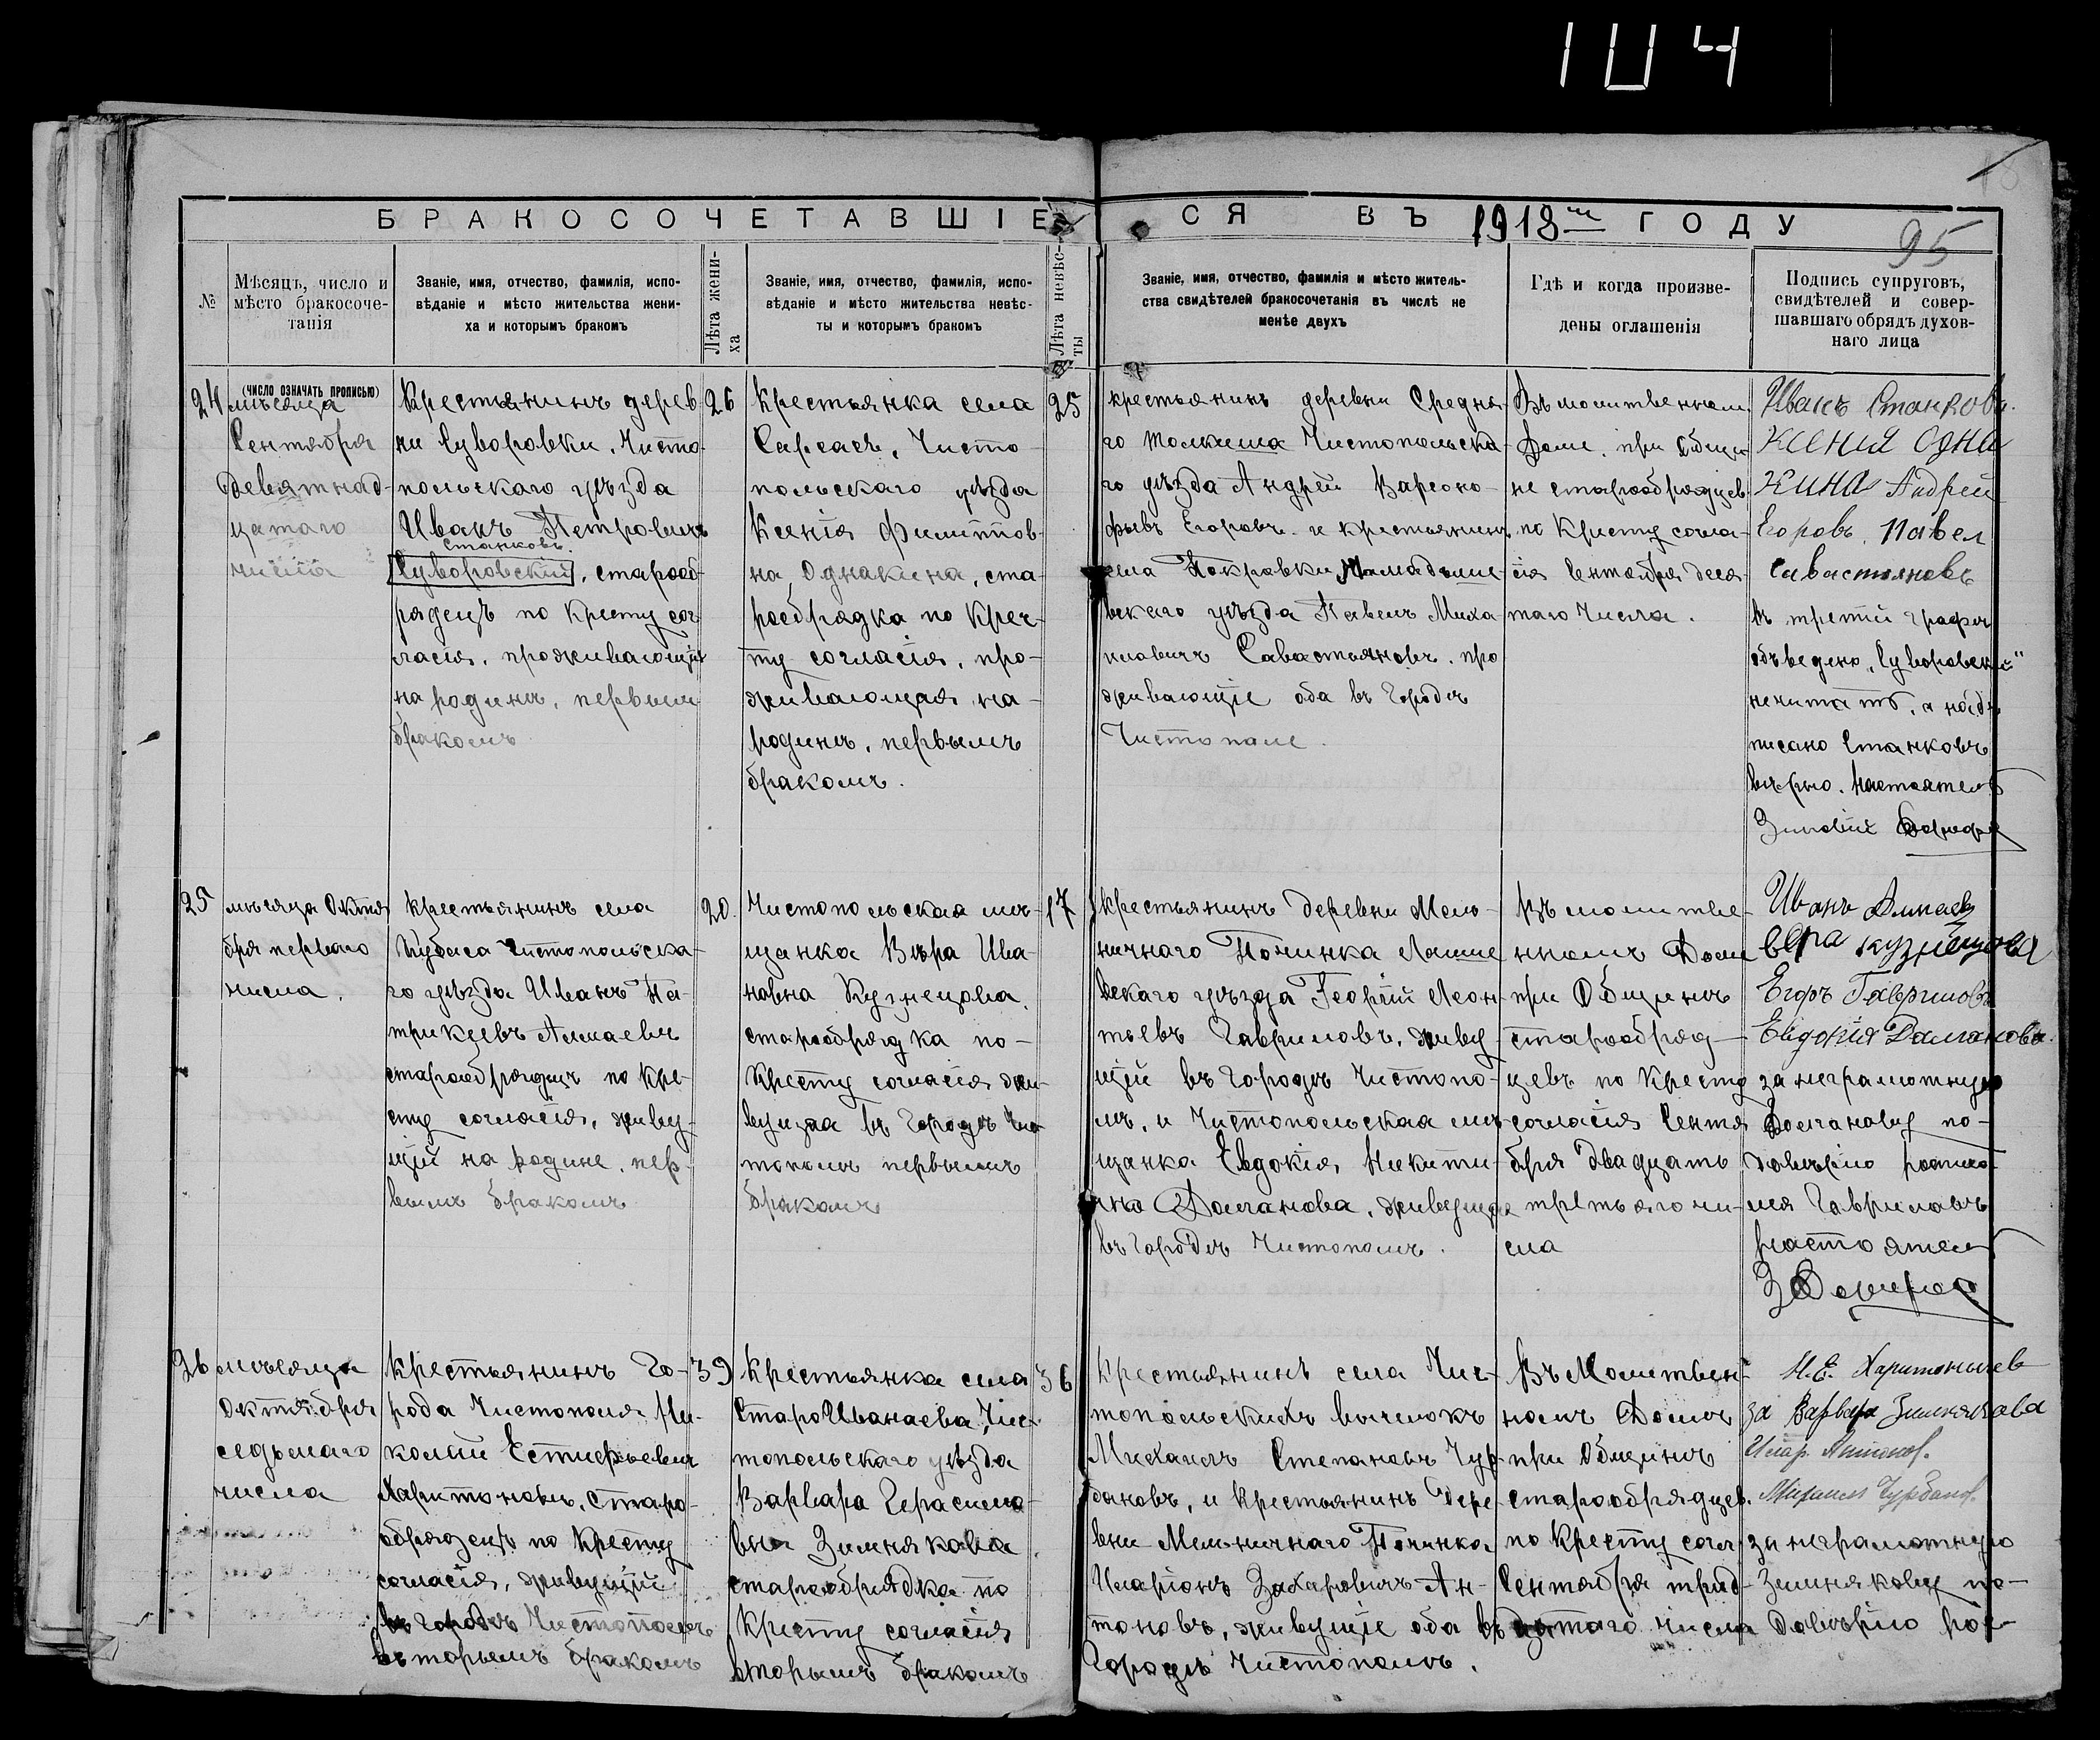 104
18
БРАКОСОЧЕТАВШІЕСЯ ВЪ 1918 ГОДУ
95
№
Мѣсяцъ, число и
мѣсто бракосоче-
танія
(число означать прописью)
Званіе, имя, отчество, фамилія, испо-
вѣданіе и мѣсто жительства жени-
ха и которымъ бракомъ
Лѣта жени-
ха
Званіе, имя, отчество, фамилія, испо-
вѣданіе и мѣсто жительства невѣс-
ты и которымъ бракомъ
Лѣта невѣс-
ты
Званіе, имя, отчество, фамилія и мѣсто житель-
ства свидѣтелей бракосочетанія въ числѣ не
менѣе двухъ
Гдѣ и когда произве-
дены оглашенія
Подпись супруговъ,
свидѣтелей и совер-
шавшаго обрядъ духов-
наго лица
24
мѣсяца
Сентября
девятнад-
цатаго
числа
Крестьянинъ дерев-
ни Суворовки, Чисто-
польскаго уѣзда
Иванъ Петровичъ
Станковъ
Суворовскій, старооб-
рядецъ по Кресту сог-
ласія, проживающій
на родинѣ, первымъ
бракомъ
26
Крестьянка села
Сарсасъ, Чисто-
польскаго уѣзда
Ксенія Филиппов-
на Однакина, ста-
рообрядка по Крес-
ту согласія, про-
живающая на-
родинѣ, первымъ
бракомъ.
25
крестьянинъ деревни Средня-
го Толкиша Чистопольска-
го уѣзда Андрей Варсоно-
фьевъ Егоровъ и крестьянинъ
села Покровки, Мамадыш-
скаго уѣзда Павелъ Миха
иловичъ Савастьяновъ, про
живающіе оба въ Городѣ
Чистополе.
Въ молитвенном
Доме, при Общи
не старообрядцев
по Кресту согла-
сія Сентября деся-
таго Числа.
Иванъ Станковъ.
Ксения Одна
кина Андрей
Егоровъ. Павел
Савастьяновъ
въ третій графѣ
объведено, "Суворовскій"
нечитать, а надъ
писано Станковъ
вѣрно. Настоятель
Зиновій
25
мѣсяца Октя
бря перваго
числа.
Крестьянинъ села
Кубаса Чистопольска-
го уѣзда Иванъ Па-
трикѣевъ Алмаевъ
старообрядецъ по Кре-
сту согласія, живу-
щій на родине, пер-
вымъ бракомъ
20.
Чистопольская мѣ-
щанка Вѣра Ива-
новна Кузнецова,
старообрядка по-
Кресту согласія жи-
вущая въ Городѣ Чис
тополѣ первымъ
бракомъ
17
Крестьянинъ деревни Мель-
ничнаго Починка Лаише
вскаго уѣзда Георгій Леон-
тьевъ Гавриловъ, живу
щій въ Городѣ Чистопо-
лѣ, и Чистопольская мѣ-
щанка Евдокія Никити-
чна Долганова, живущая
въ Городѣ Чистополѣ.
Въ молитве-
нномъ Доме
при Общинѣ
старообряд-
цевъ по Кресту
согласія Сентя
бря двадцать
третьяго чи-
сла
Иванъ Алмаевъ
вера кузнецова
Егоръ Гавриловъ
Евдокія Долганова.
за неграмотную
Долганову по-
довѣрію росписа
лся Гавриловъ
настоятель
26
мѣсяца
Октября
седьмаго
числа
Крестьянинъ Го-
рода Чистополя Ни-
колай Естифьевич
Харитоновъ, Старо-
обрядецъ по Кресту
согласія, живущій
въ городѣ Чистополѣ
вторымъ бракомъ
39
Крестьянка села
СтароИванаева, Чис-
топольскаго уѣзда
Варвара Герасимо-
вна Зимнякова
старообрядка по
Кресту согласія
вторымъ бракомъ
36
Крестьянинъ села Чис-
топольскихъ выселокъ
Михаилъ Степановъ Чур-
бановъ, и Крестьянинъ Дере-
вни Мельничнаго Починка
Иларіонъ Захаровичъ Ан-
тоновъ, живущіе оба въ
Городѣ Чистополѣ.
Въ Молитвен-
номъ Домѣ
при Общинѣ
старообрядцев.
по Кресту согл
Сентября трид-
цатаго числа
Н.Е. Харитонычев
за Варвара Зимнякова
Илар. Антонов.
Михаил Чурбанов.
за неграмотную
Зимнякову по-
довѣрію рос-